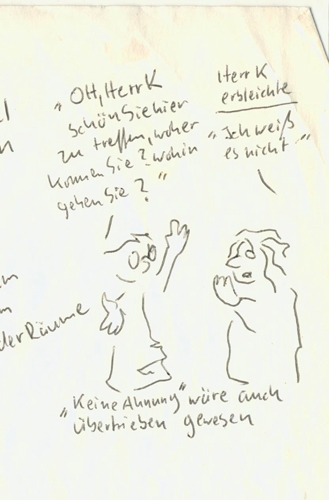 „OH, Herr K
schön Sie hier
zu treffen, woher
kommen Sie? wohin
gehen Sie?"
Herr K
erbleichte
„Ich weiß
es nicht"
der Räume
„Keine Ahnung" wäre auch
übertrieben gewesen